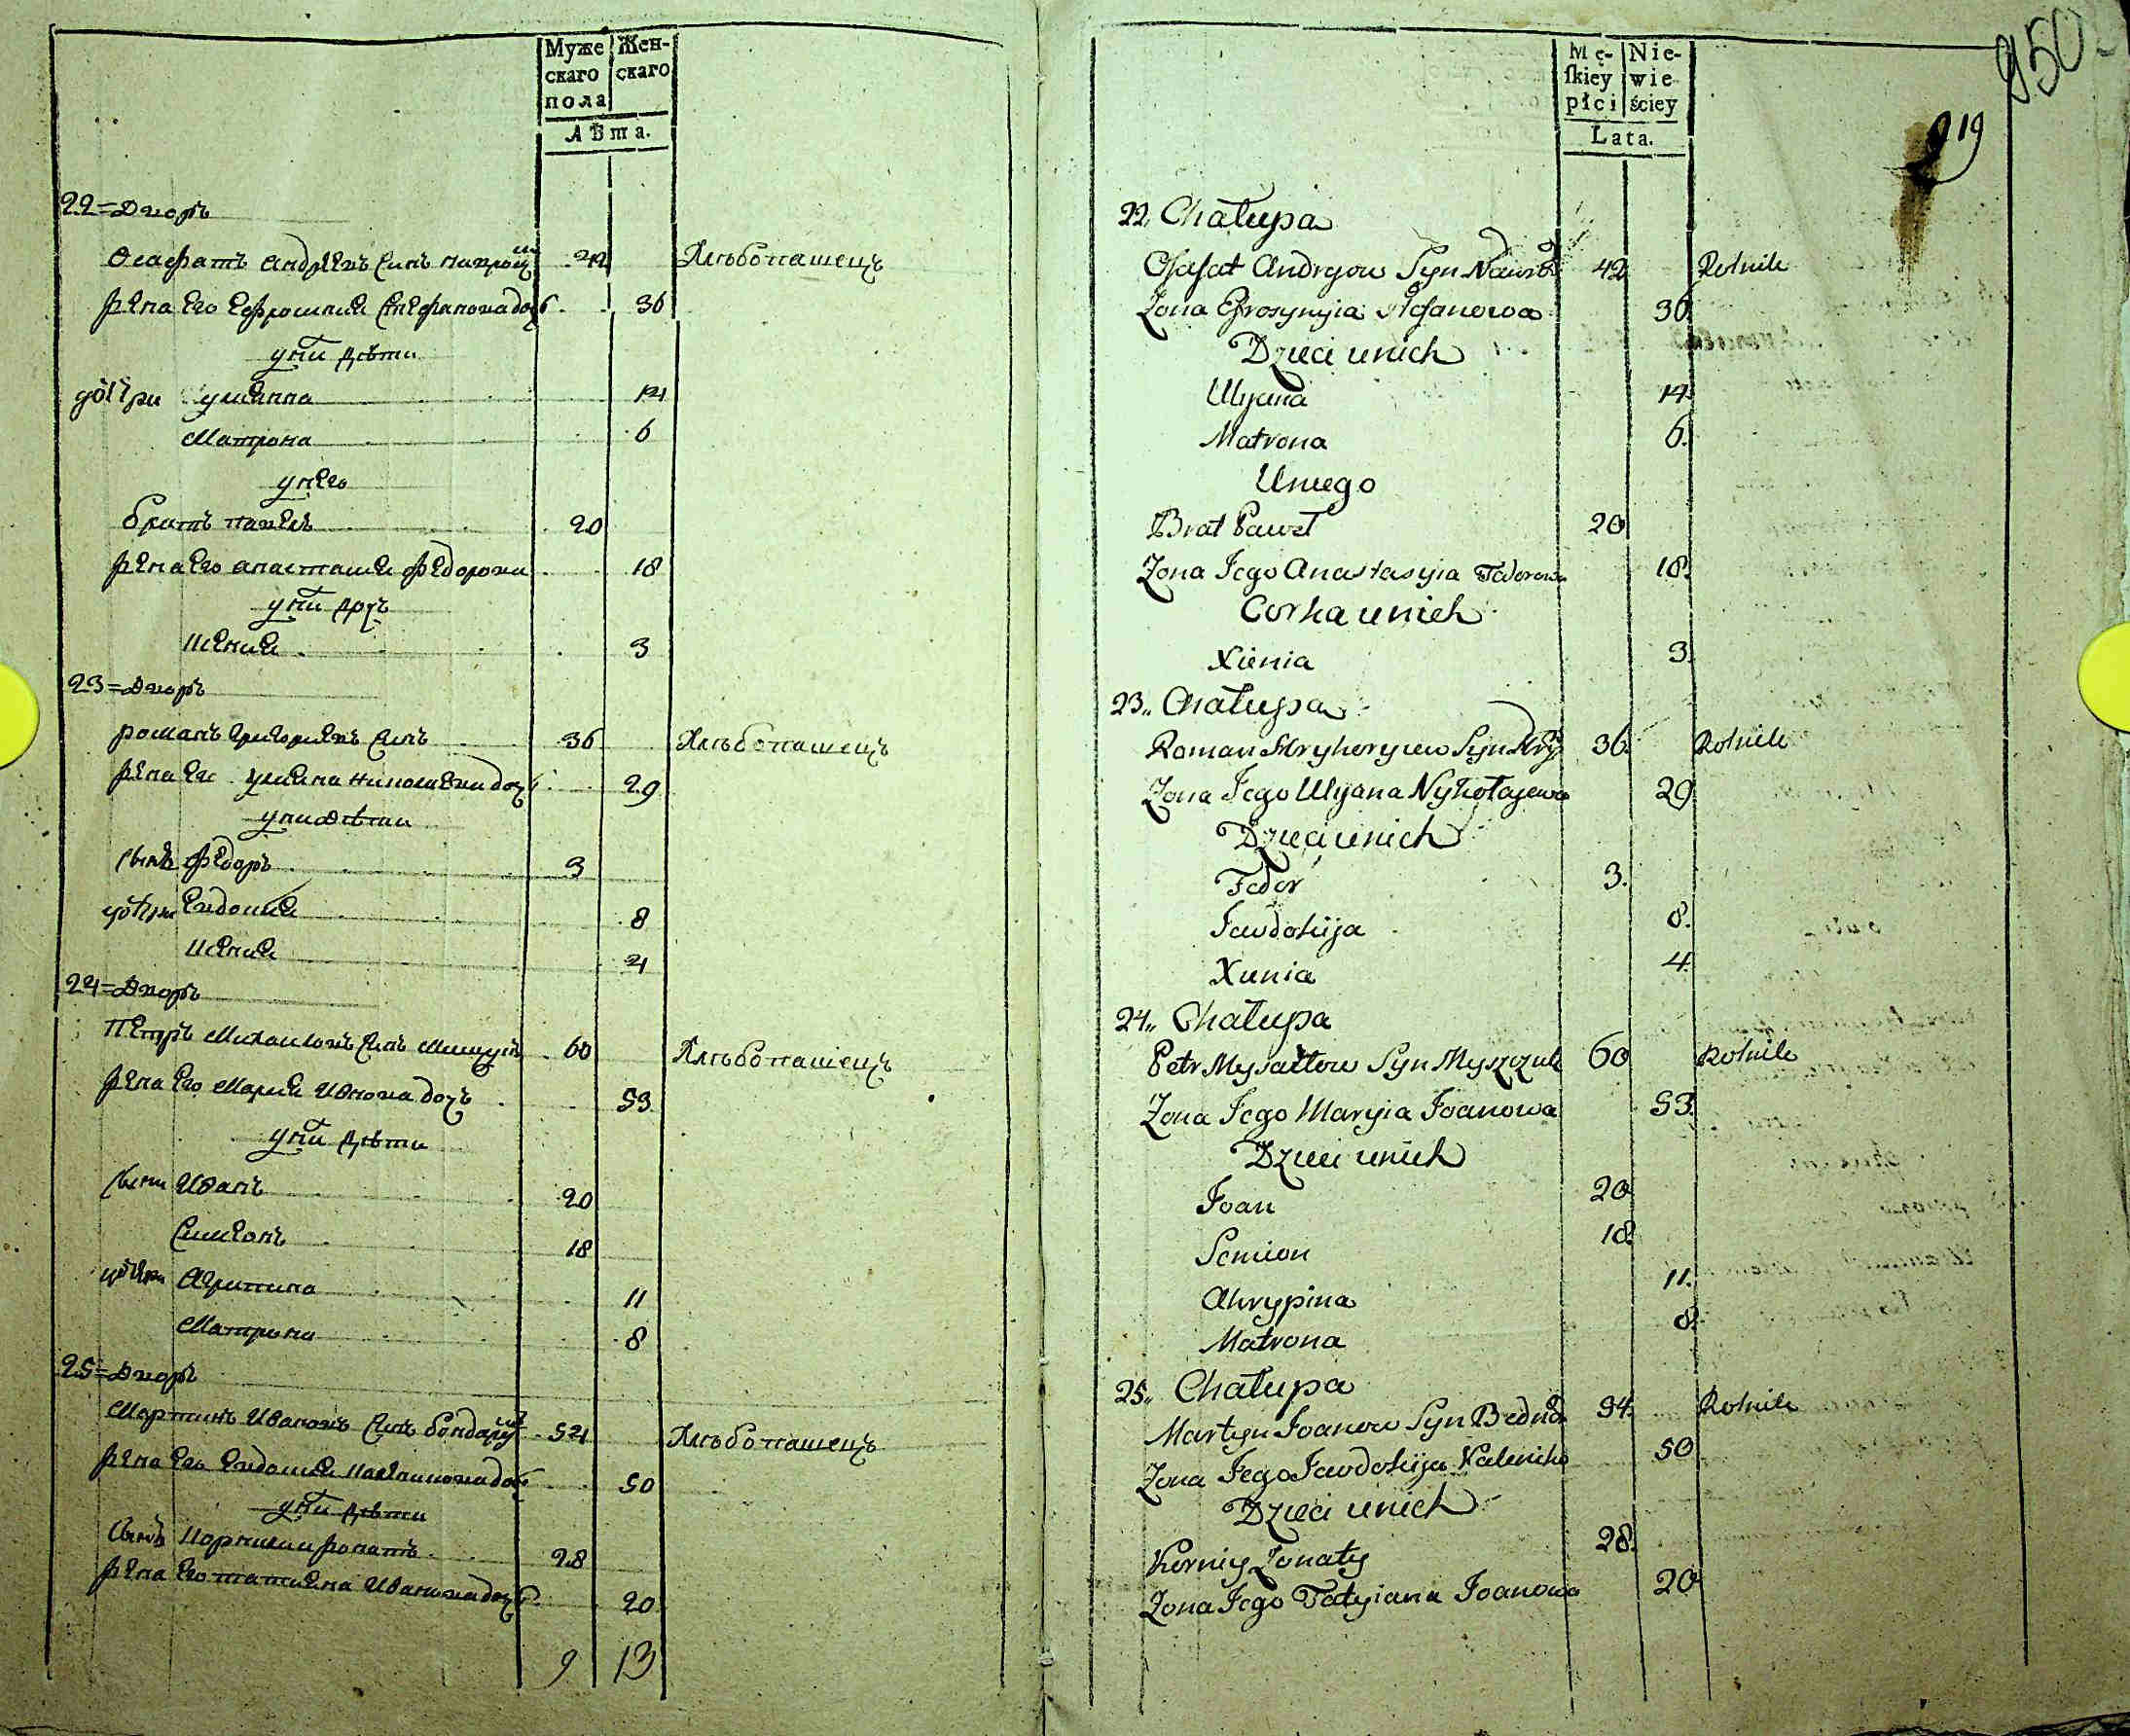 Муже
скаго
пола
Жен-
скаго
Лѣта.
22=Дворъ
Осафатъ Андрѣевъ Синъ 42 Хлѣбопашецъ
жена его Ефросиния Стефанова доч 36
у них дѣти
дочери уляна 14
Матрона 6
у него
братъ павелъ 20
жена его анастасия федорова 18
у них дочъ
ксения 3
23=Дворъ
романъ григориевъ Синъ 36 Хлѣбопашецъ
жена его уляна николаева доч 29
у них дѣти
сынъ федоръ 3
дочери Евдокия 8
ксения 4
24=Дворъ
Петръ Михаиловъ Синъ 60 Хлѣбопашецъ
жена его Мария Иванова дочъ 53
у них дѣти
сыни Иванъ 20
Симеонъ 18
дочери Агрипина 11
Матрона 8
25=Дворъ
Мартинъ Ивановъ Синъ 54 Хлѣбопашецъ
жена его Евдокия доч 50
у них дѣти
Синъ Корнилий жонатъ 28
жена его татиана Иванова доч 20
9 13
950
219
Mę-
ſkiey
płci
Nie-
wie
ściey
Lata.
22,, Chałupa
Ofafat Andryow Syn 42 Rolnik
Zona Efrosynyia Stefanowa 36.
Dzieci u nich
Ulyana 14.
Matrona 6.
U niego
Brat Paweł 20
Zona Jego Anastasyia Fedorowa 18.
Corka u nich
Xienia 3.
23,, Chałupa
Roman Hryhoryew Syn 36. Rolnik
Zona Jego Ulyana Nykołajewa 29
Dzieci u nich
Fedor 3.
Jawdokija 8.
Xienia 4.
24,, Chałupa
Petr Mysaiłow Syn Myszczuk 60 Rolnik
Zona Jego Maryia Joanowa 53.
Dzieci u nich
Joan 20
Semion 18.
Ahrypina 11.
Matrona 8.
25,, Chałupa
Martyn Joanow Syn 54. Rolnik
Zona Jego Jawdokija 50
Dzieci u nich
Korniy Zonaty 28.
Zona Jego Tatyiana Joanowa 20